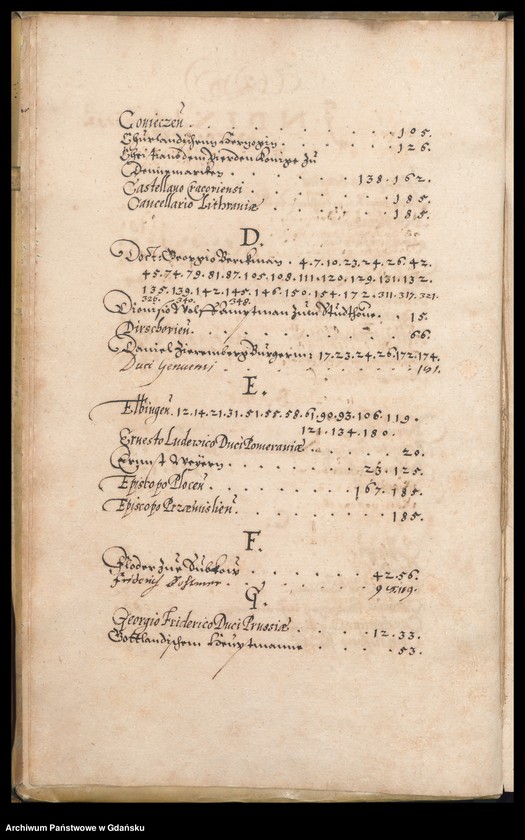 Conieczen̄ . . . . . . . 105.
Churlandischenn Hertzogin . . . . . 126.
Christianodem Vierden Konige zu
Dennemarcken . . . . . 138. 162.
Castellano Cracoviensi . . . . . 185.
Cancellario Lithvaniæ . . . . . 185.
D.
Doct: Georgio Berckman . 4.7.10.23.24.26.42.
45.74.79.81.87.105.108.111.120.129.131.132.
135.139.142.145.146.150.154.172.311.317.321.
326. 340. 348.
Wolff Hauptman zum Studthoue . . 15.
Dirschovien̄ . . . . . . . 66.
Daniel Zierenberg Burgerm: 17.23.24.26.172.174.
Duci Genuensi . . . . . 191.
E.
Elbingen̄ . 12.14.21.31.51.55.58.61.90.93.106.119.
121.134.180.
Ernesto Ludovico Duci Pomeraniæ . . . . 20.
Ernst Weyern . . . . . . 23.125.
Episcopo Plocen̄ . . . . . 167.185.
Episcopo Præmislien̄ . . . . . . 185.
F.
Floder zur Subkow . . . . . 42.56.
Friderich
G.
Georgio Friderico Duci Prussiæ . . . . 12.33.
Gottlandischem Heuptmanne . . . . 53.
Archiwum Państwowe w Gdańsku